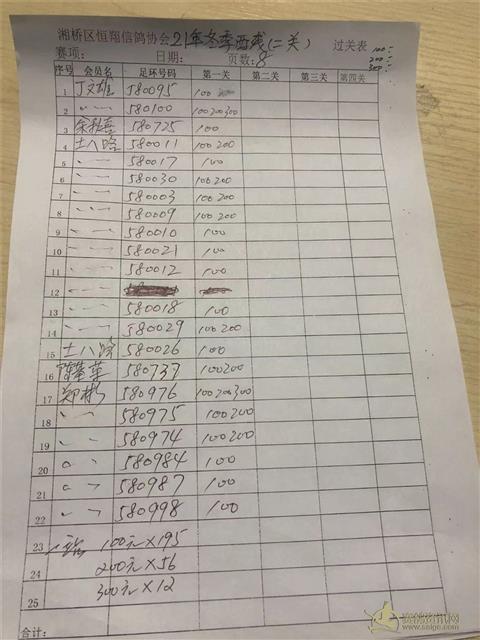 湘桥区恒翔信鸽协会21年冬季西线(二关) 过关表
赛项: 日期: 页数:8 100:
200:
300:
序号 会员名 足环号码 第一关 第二关 第三关 第四关
1 丁文雄 580095 100
2 〃 580100 100 200 300
3 580725 100
4 士八路 580011 100 200
5 〃 580017 100
6 〃 580030 100 200
7 〃 580003 100 200
8 〃 580009 100 200
9 〃 580010 100
10 〃 580021 100
11 〃 580012 100
12
13 〃 580018 100
14 〃 580029 100 200
15 士八路 580026 100
16 580737 100 200
17 郑彬 580976 100 200 300
18 〃 580975 100 200
19 〃 580974 100 200
20 〃 580984 100
21 〃 580987 100
22 〃 580998 100
23 100元×195
24 200元×56
25 300元×12
合计:
www.saige.com